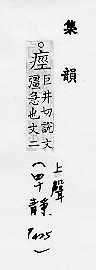 集韻
痙巨井切說文
彊急也文二
上聲
(四十靜